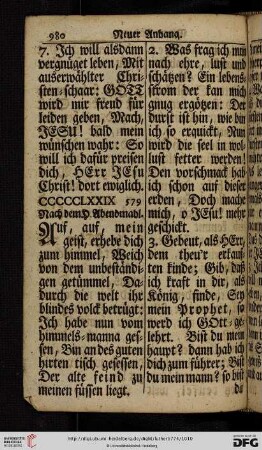 980 Neuer Anhang.
7. Ich will alsdann
vergnüget leben, Mit
auserwählter Chri-
sten-schaar: GOTT
wird mir freud für
leiden geben, Mach,
JESU! bald mein
wünschen wahr: So
will ich dafür preisen
dich, HErr JEsu
Christ! dort ewiglich.
CCCCCLXXIX 579
Nach dem H. Abendmahl.
Auf, auf, mein
geist, erhebe dich
zum himmel, Weich
von dem unbeständi-
gen getümmel, Da-
durch die welt ihr
blindes volck betrügt;
Ich habe nun vom
himmels-manna ges-
sen, Bin an des guten
hirten tisch gesessen,
Der alte feind zu
meinen füssen liegt.
2. Was frag ich nun
nach ehre, lust und
schätzen? Ein lebens-
strom der kan mich
gnug ergötzen: Der
durst ist hin, wie bin
ich so erquickt, Nun
wird die seel in wol-
lust fetter werden
Den vorschmack hab
ich schon auf dieser
erden, Doch mache
mich, o JEsu! mehr
geschickt.
3. Gebeut, als HErr,
dem theu'r erkauf-
ten kinde; Gib, daß
ich kraft in dir, als
König, finde, Sey
mein Prophet, so
werd ich GOtt-ge-
lehrt. Bist du mein
haupt? dann hab ich
dich zum führer; Bist
du mein mann? so bist
DFG